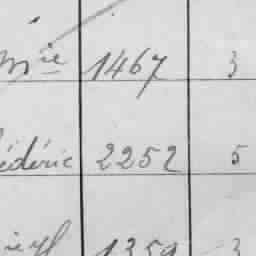 Mie 1467 3
édéric 2252 5
1359 3